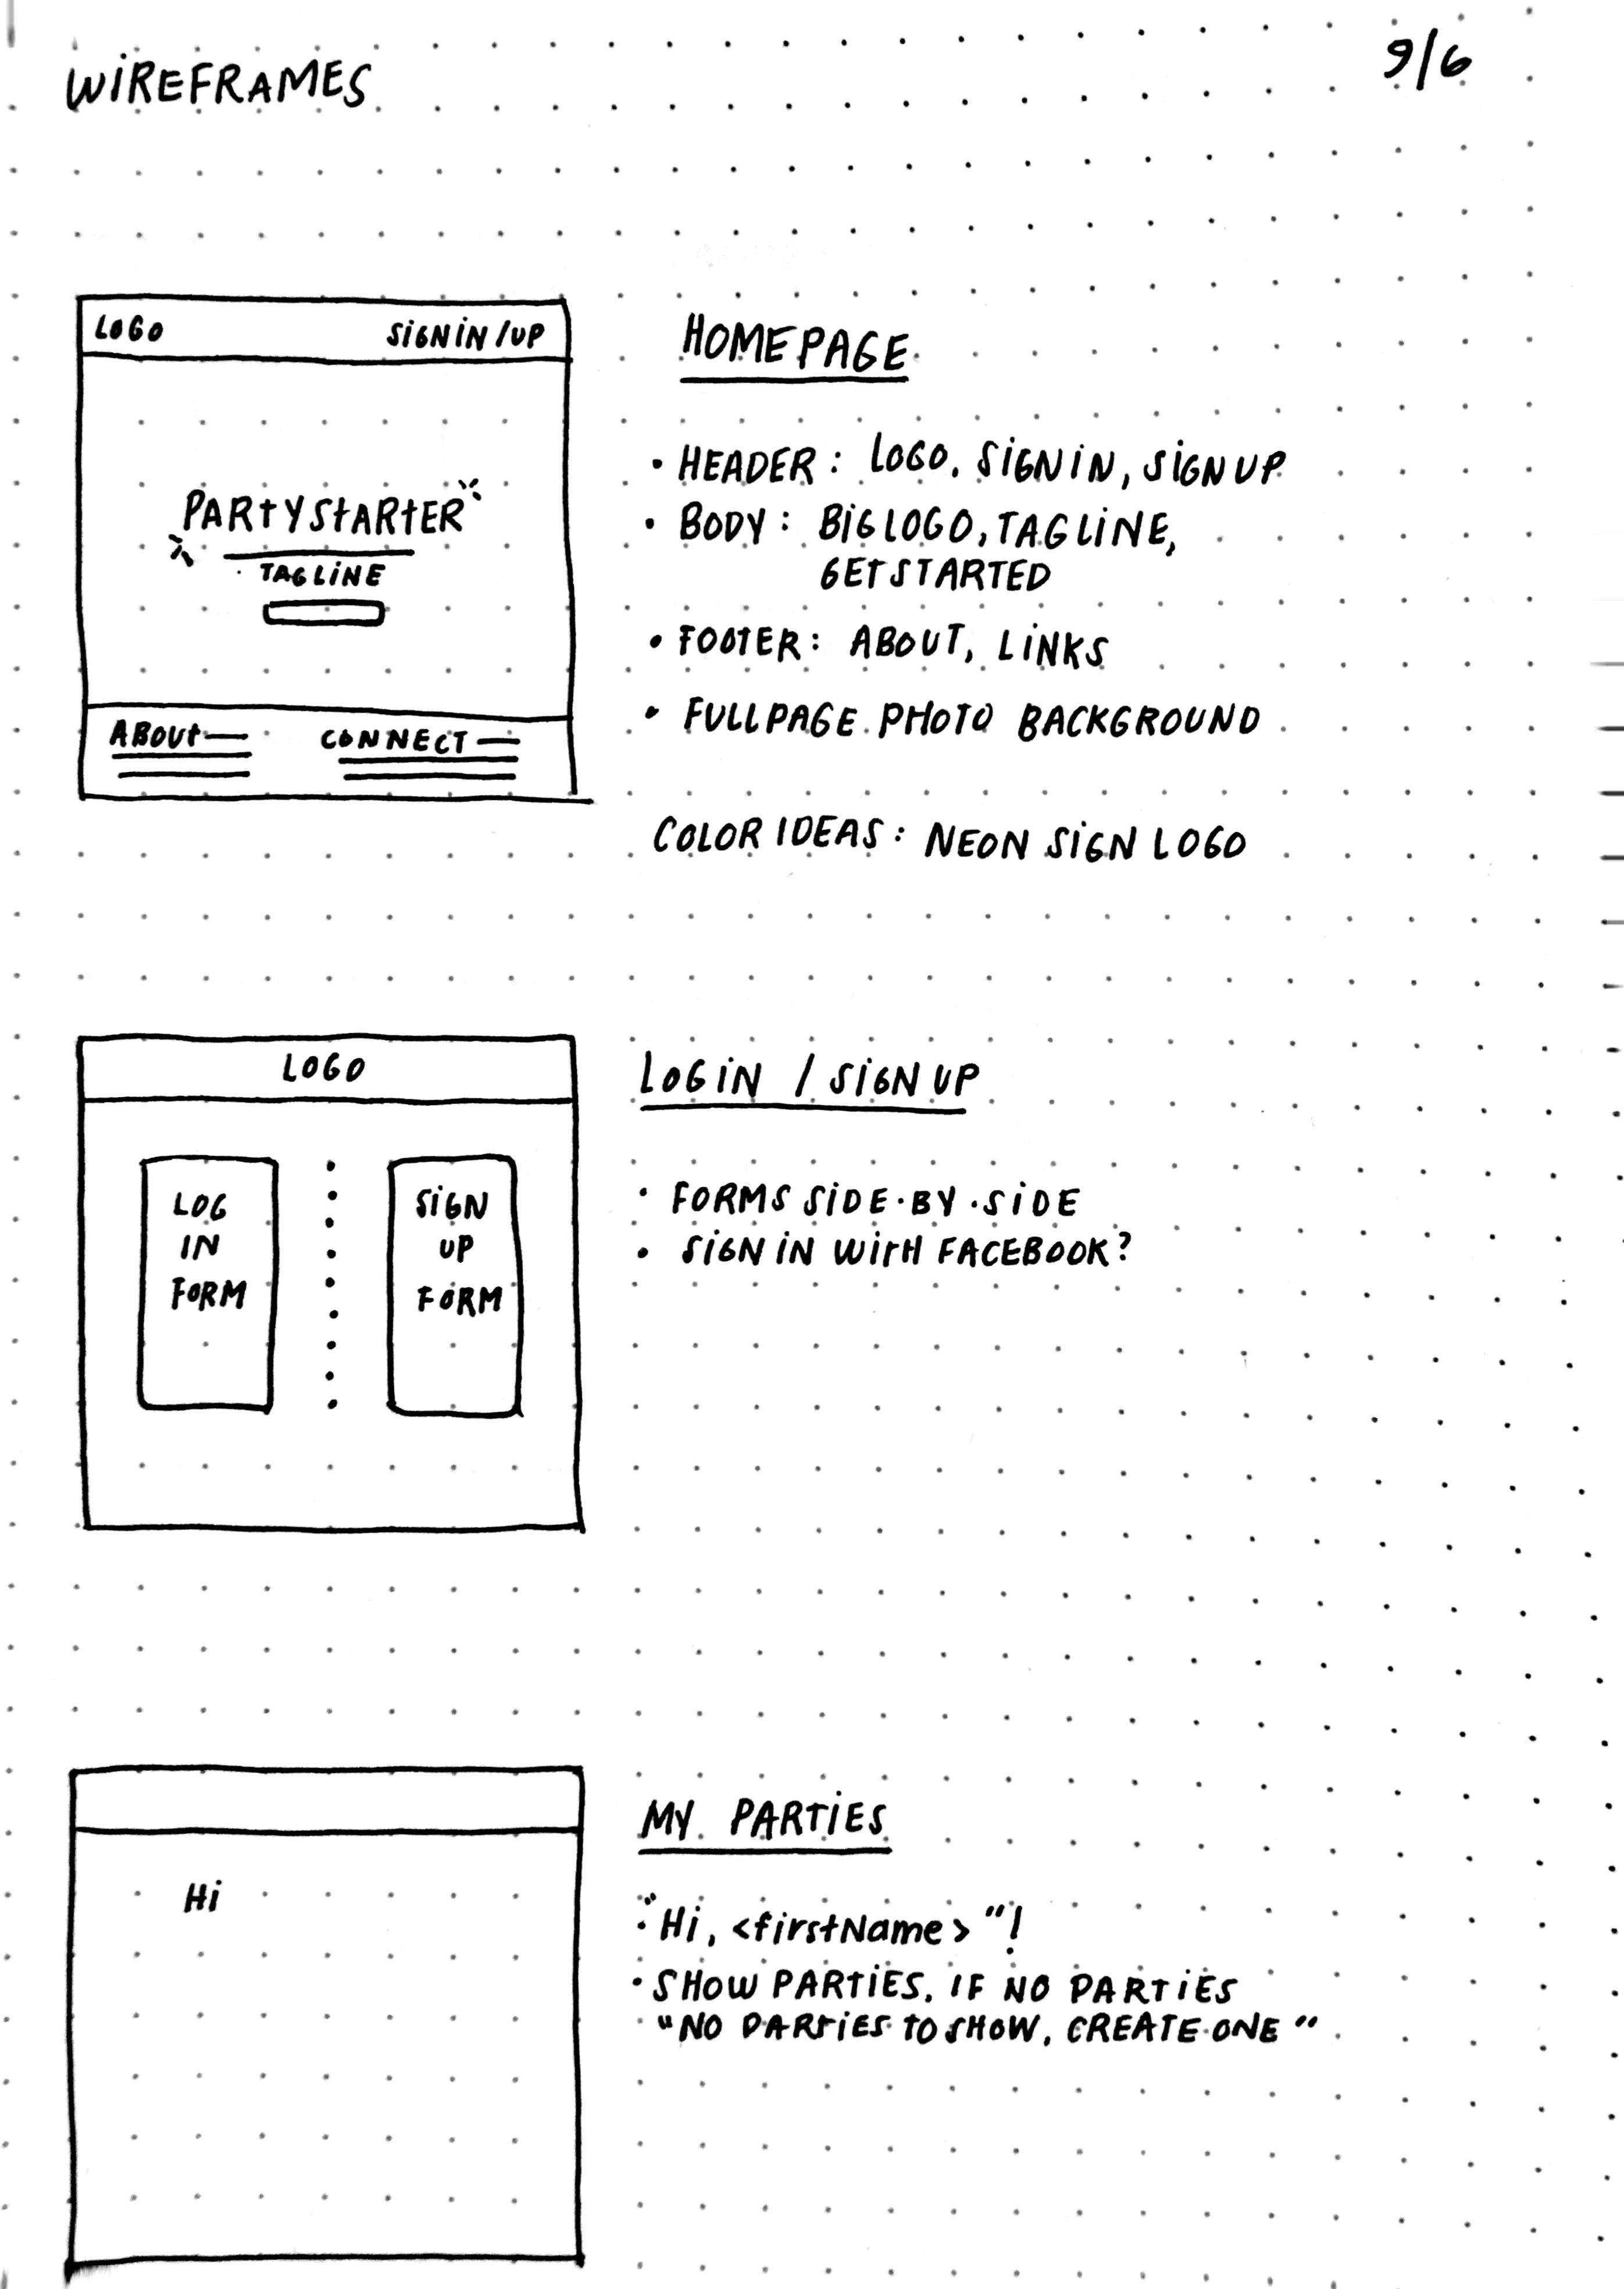 WIREFRAMES
9/6
LOGO SIGN IN/UP
PARTYSTARTER
TAGLINE
ABOUT CONNECT
HOMEPAGE
• HEADER: LOGO, SIGN IN, SIGN UP
• BODY: BIG LOGO, TAGLINE,
GET STARTED
• FOOTER: ABOUT, LINKS
• FULLPAGE PHOTO BACKGROUND
COLOR IDEAS: NEON SIGN LOGO
LOGO
LOG
IN
FORM
SIGN
UP
FORM
LOGIN / SIGN UP
• FORMS SIDE-BY-SIDE
• SIGN IN WITH FACEBOOK?
Hi
MY PARTIES
• "Hi, <firstName>"!
• SHOW PARTIES. IF NO PARTIES
"NO PARTIES TO SHOW. CREATE ONE"